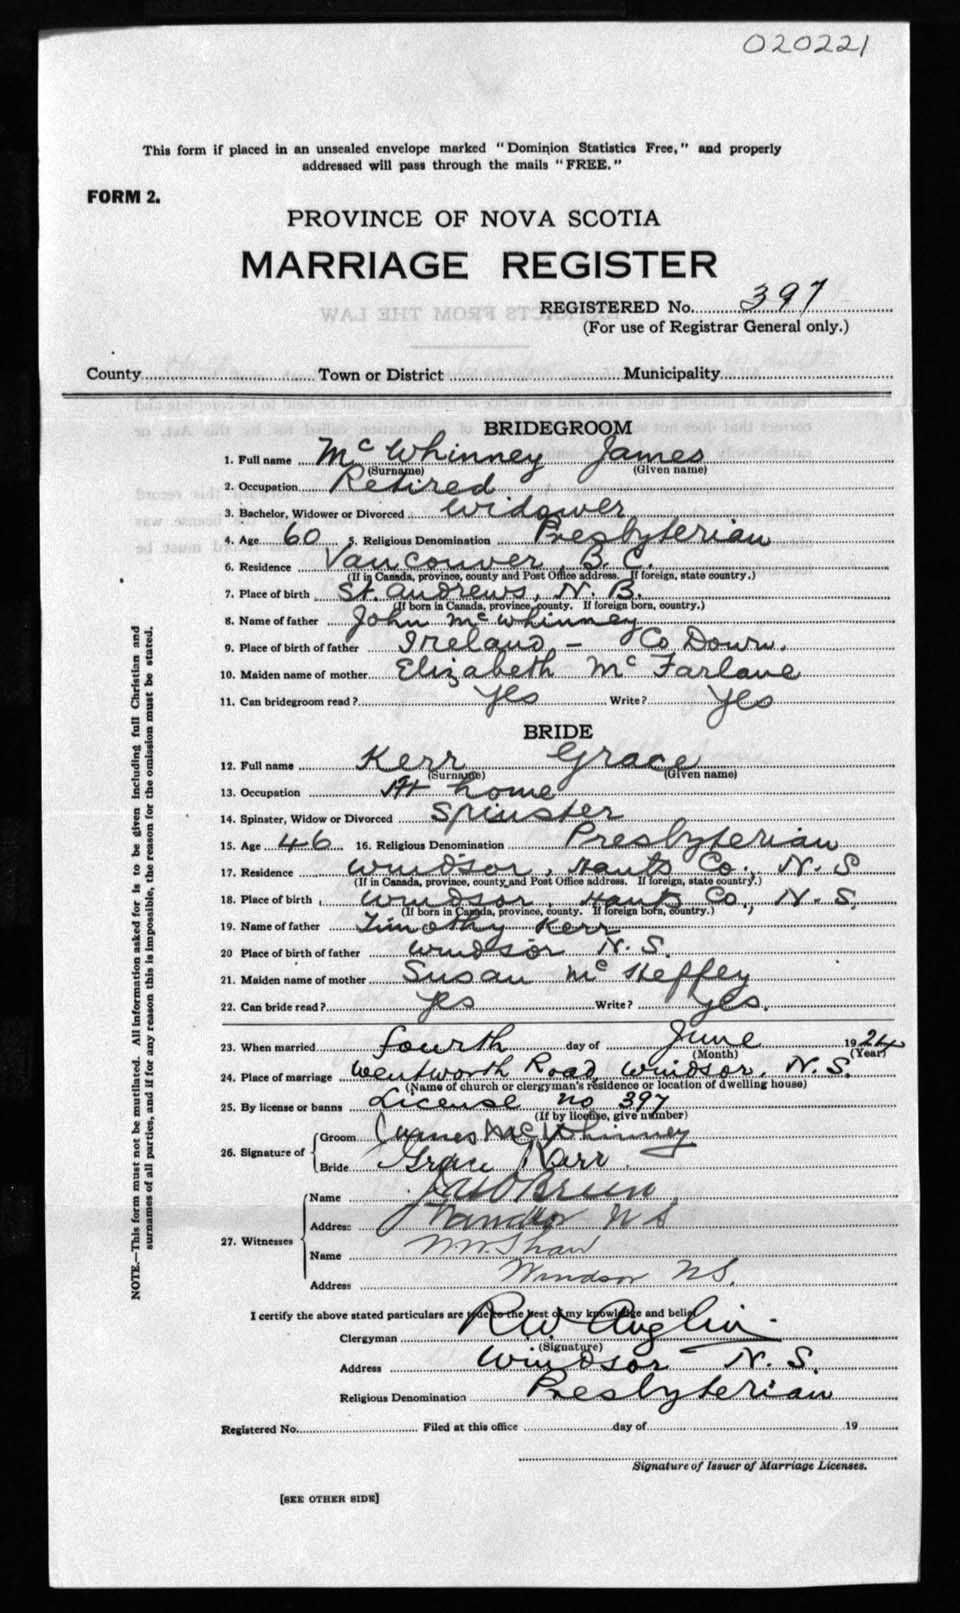 020221
This form if placed in an unsealed envelope marked "Dominion Statistics Free," and properly
addressed will pass through the mails "FREE."
FORM 2.
PROVINCE OF NOVA SCOTIA
MARRIAGE REGISTER
REGISTERED No. 397
(For use of Registrar General only.)
County Town or District Municipality
BRIDEGROOM
1. Full name McWhinney James
(Surname) (Given name)
2. Occupation Retired
3. Bachelor, Widower or Divorced Widower
4. Age 60 5. Religious Denomination Presbyterian
6. Residence Vancouver, B.C.
(If in Canada, province, county and Post Office address. If foreign, state country.)
7. Place of birth St. Andrews, N.B.
(If born in Canada, province, county. If foreign born, country.)
8. Name of father John McWhinney
9. Place of birth of father Ireland - Co Down.
10. Maiden name of mother Elizabeth McFarlane
11. Can bridegroom read? Yes Write? Yes
BRIDE
12. Full name Kerr Grace
(Surname) (Given name)
13. Occupation At home
14. Spinster, Widow or Divorced Spinster
15. Age 46 16. Religious Denomination Presbyterian
17. Residence Windsor, Hants Co., N.S
(If in Canada, province, county and Post Office address. If foreign, state country.)
18. Place of birth Windsor, Hants Co., N.S.
(If born in Canada, province, county. If foreign born, country.)
19. Name of father Timothy Kerr
20 Place of birth of father Windsor N.S.
21. Maiden name of mother Susan McHeffey
22. Can bride read? Yes Write? Yes.
23. When married fourth day of June 1924
(Month) (Year)
24. Place of marriage Wentworth Road, Windsor, N.S.
(Name of church or clergyman's residence or location of dwelling house)
25. By license or banns License no 397
(If by license, give number)
26. Signature of Groom James McWhinney
Bride Grace Kerr.
27. Witnesses Name O'Brien
Address Windsor NS
Name Shaw
Address Windsor NS.
I certify the above stated particulars are true to the best of my knowledge and belief
Clergyman R.W. Anglin
(Signature)
Address Windsor N.S.
Religious Denomination Presbyterian
Registered No. Filed at this office day of 19
Signature of Issuer of Marriage Licenses.
[SEE OTHER SIDE]
NOTE.—This form must not be mutilated. All information asked for is to be given including full Christian and
surnames of all parties, and if for any reason this is impossible, the reason for the omission must be stated.